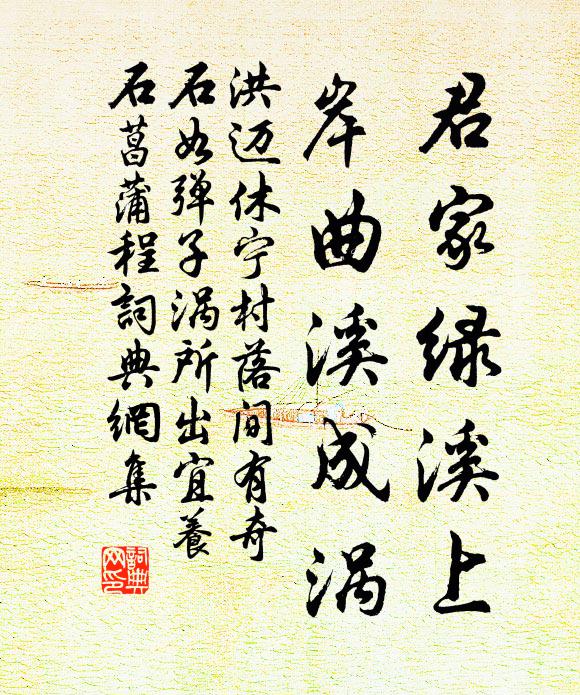 君家绿溪上
岸曲溪成涡
洪迈休宁村落间有奇
石如弹子涡所出宜養
石菖蒲程詞典網集
詞典
网印